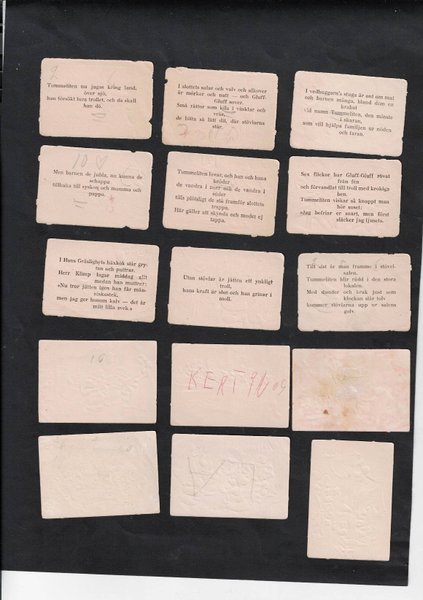 Tummeliten nu jagas kring land,
över sjö,
han försökt lura trollet, och då skall
han dö.
I slottets salar och valv och alkover
är mörker och natt — och Gluff-
Gluff sover.
Små råttor som kila i vinklar och
vrår,
de hålla så lätt till, där stövlarna
står.
I vedhuggarn's stuga är ont om mat
och barnen många, bland dem en
krabat
vid namn Tummeliten, den minste
i skaran,
som vill hjälpa familjen ur nöden
och faran.
10
Men barnen de jubla, nu kunna de
schappa
tillbaka till syskon och mamma och
pappa.
Tummeliten lovar, och han och hans
bröder
de vandra i norr och de vandra i
söder
tills plötsligt de stå framför slottets
trappa
Här gäller att skynda och modet ej
tappa.
Sex flickor har Gluff-Gluff stöval
från fén
och förvandlat till troll med krokiga
ben.
Tummeliten viskar så knappt man
hör suset:
»Jag befriar er snart, men först
släcker jag ljuset».
I Hans Gräslighets häxkök står gry-
tan och puttrar.
Herr Klimp lagar middag allt
medan han muttrar:
»Nu tror jätten igen får han män-
niskostek,
men jag ger honom kalv — det är
mitt lilla svek.»
Utan stövlar är jätten ett ynkligt
troll,
hans kraft är slut och han grinar i
moll.
Till sist är man framme i stövel-
salen.
Tummeliten blir rädd i den stora
lokalen.
Med dunder och brak just som
klockan slår tolv
komma stövlarna upp ur salens
golv.
16
KERTIN